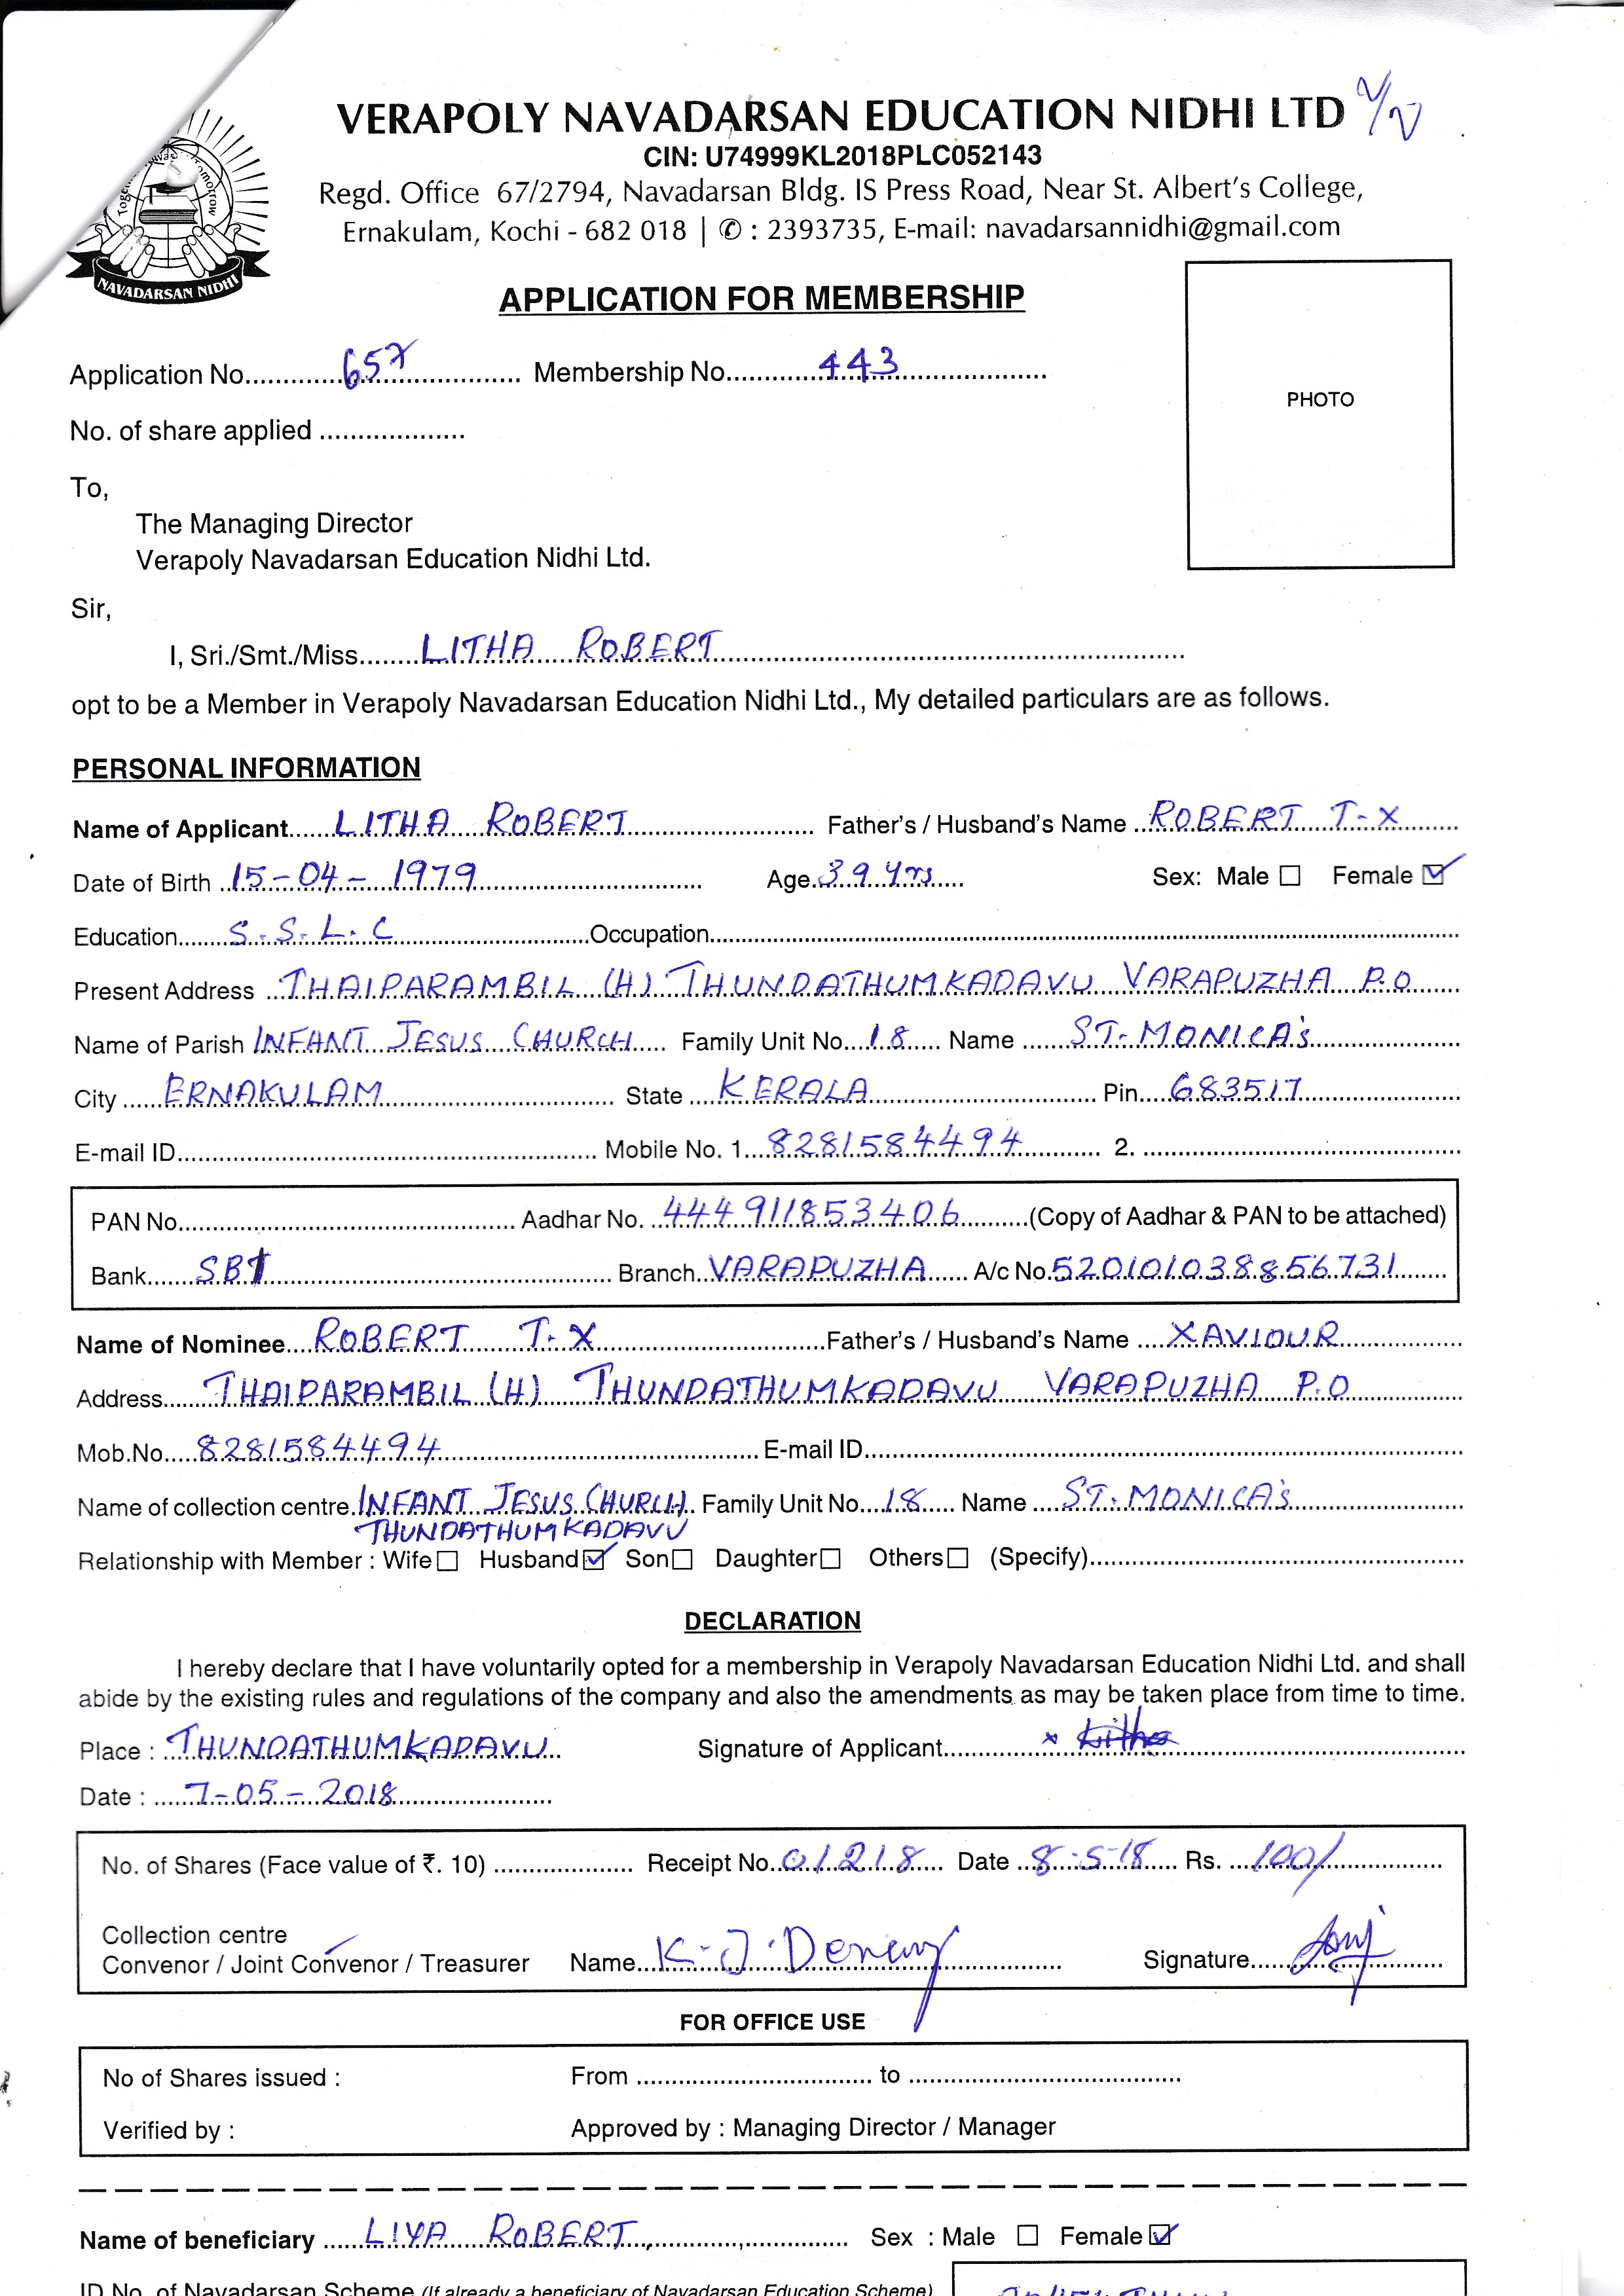 VERAPOLY NAVADARSAN EDUCATION NIDHI LTD
CIN: U74999KL2018PLC052143
Regd. Office 67/2794, Navadarsan Bldg. IS Press Road, Near St. Albert's College,
Ernakulam, Kochi - 682 018 | ✆ : 2393735, E-mail: navadarsannidhi@gmail.com
NAVADARSAN NIDHI
APPLICATION FOR MEMBERSHIP
Application No. 657 Membership No. 443
PHOTO
No. of share applied
To,
The Managing Director
Verapoly Navadarsan Education Nidhi Ltd.
Sir,
I, Sri./Smt./Miss LITHA ROBERT
opt to be a Member in Verapoly Navadarsan Education Nidhi Ltd., My detailed particulars are as follows.
PERSONAL INFORMATION
Name of Applicant LITHA ROBERT Father's / Husband's Name ROBERT T-X
Date of Birth 15-04-1979 Age 39 Yrs Sex: Male ☐ Female ☑
Education S.S.L.C Occupation
Present Address THAIPARAMBIL (H) THUNDATHUMKADAVU VARAPUZHA P.O
Name of Parish INFANT JESUS CHURCH Family Unit No. 18 Name ST. MONICA's
City ERNAKULAM State KERALA Pin 683517
E-mail ID Mobile No. 1. 8281584494 2.
PAN No. Aadhar No. 444911853406 (Copy of Aadhar & PAN to be attached)
Bank Branch VARAPUZHA A/c No. 520101038856731
Name of Nominee ROBERT T.X Father's / Husband's Name XAVIOUR
Address THAIPARAMBIL (H) THUNDATHUMKADAVU VARAPUZHA P.O
Mob.No. 8281584494 E-mail ID
Name of collection centre INFANT JESUS CHURCH Family Unit No. 18 Name ST. MONICA's
THUNDATHUMKADAVU
Relationship with Member : Wife ☐ Husband ☑ Son ☐ Daughter ☐ Others ☐ (Specify)
DECLARATION
I hereby declare that I have voluntarily opted for a membership in Verapoly Navadarsan Education Nidhi Ltd. and shall
abide by the existing rules and regulations of the company and also the amendments as may be taken place from time to time.
Place : THUNDATHUMKADAVU Signature of Applicant x Litha
Date : 7-05-2018
No. of Shares (Face value of ₹. 10) Receipt No. 01218 Date 8-5-18 Rs. 100/
Collection centre
Convenor / Joint Convenor / Treasurer Name K.J. Signature
FOR OFFICE USE
No of Shares issued : From to
Verified by : Approved by : Managing Director / Manager
Name of beneficiary LIYA ROBERT Sex : Male ☐ Female ☑
ID No. of Navadarsan Scheme (If already a beneficiary of Navadarsan Education Scheme)